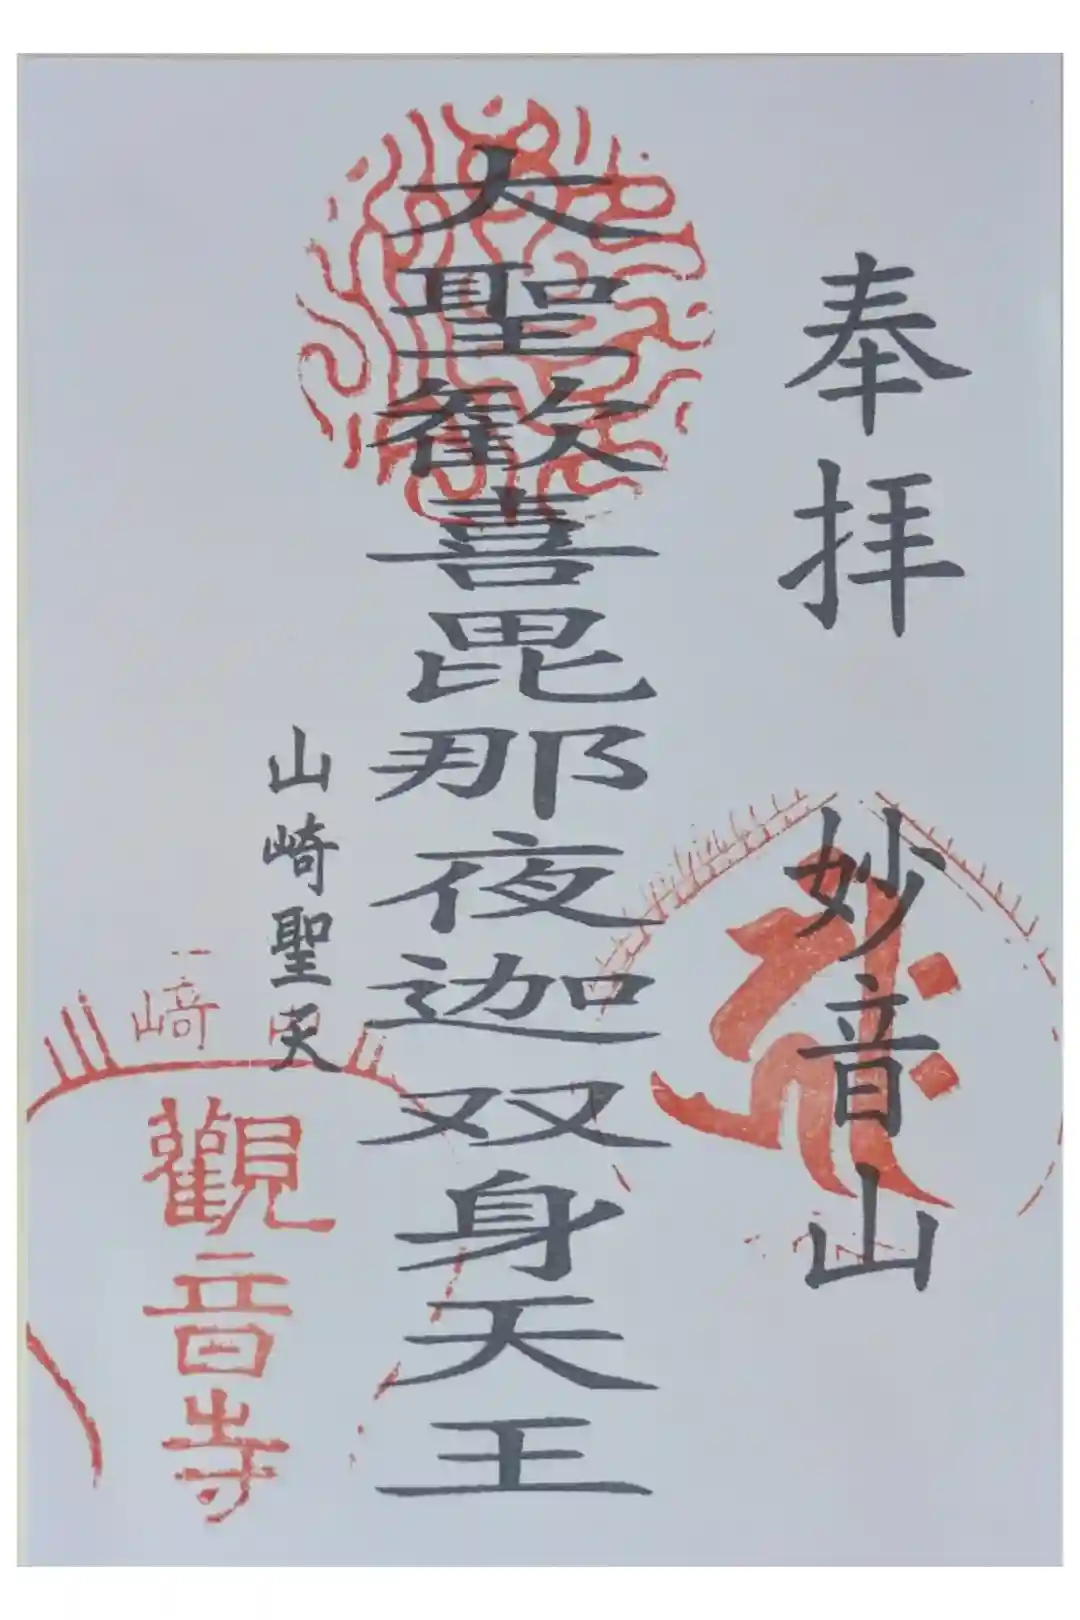 奉拝
妙音山
大聖歓喜毘那夜迦双身天王
山崎聖天
崎
觀音寺